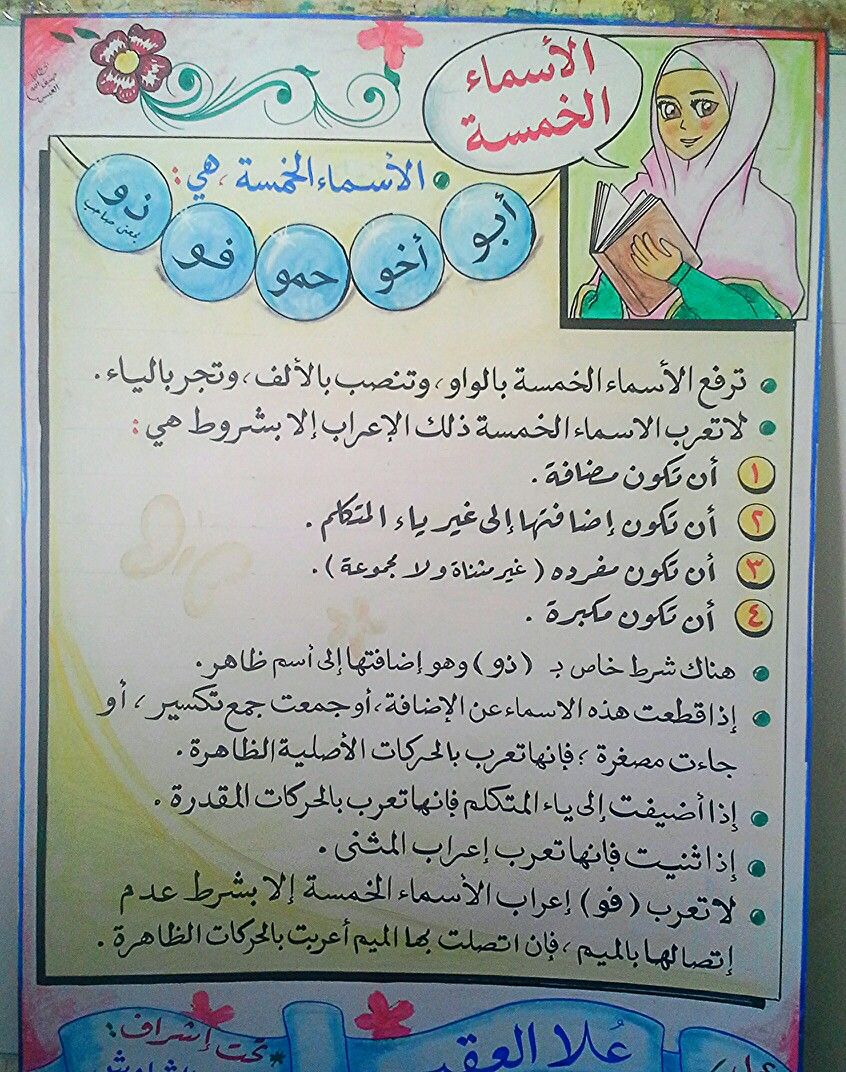 الأسماء
الخمسة
الأسماء الخمسة، هي:
أبو
أخو
حمو
فو
ذو
بمعنى صاحب
ترفع الأسماء الخمسة بالواو، وتنصب بالألف، وتجر بالياء.
لا تعرب الاسماء الخمسة ذلك الإعراب إلا بشروط هي:
١ أن تكون مضافة.
٢ أن تكون إضافتها إلى غير ياء المتكلم.
٣ أن تكون مفرده (غير مثناة ولا مجموعة).
٤ أن تكون مكبرة.
هناك شرط خاص بـ (ذو) وهو إضافتها إلى أسم ظاهر.
إذا قطعت هذه الاسماء عن الإضافة، أو جمعت جمع تكسير، أو
جاءت مصغرة؛ فإنها تعرب بالحركات الأصلية الظاهرة.
إذا أضيفت إلى ياء المتكلم فإنها تعرب بالحركات المقدرة.
إذا ثنيت فإنها تعرب إعراب المثنى.
لا تعرب (فو) إعراب الأسماء الخمسة إلا بشرط عدم
إتصالها بالميم، فإن اتصلت بها الميم أعربت بالحركات الظاهرة.
عُلا
تحت إشراف: